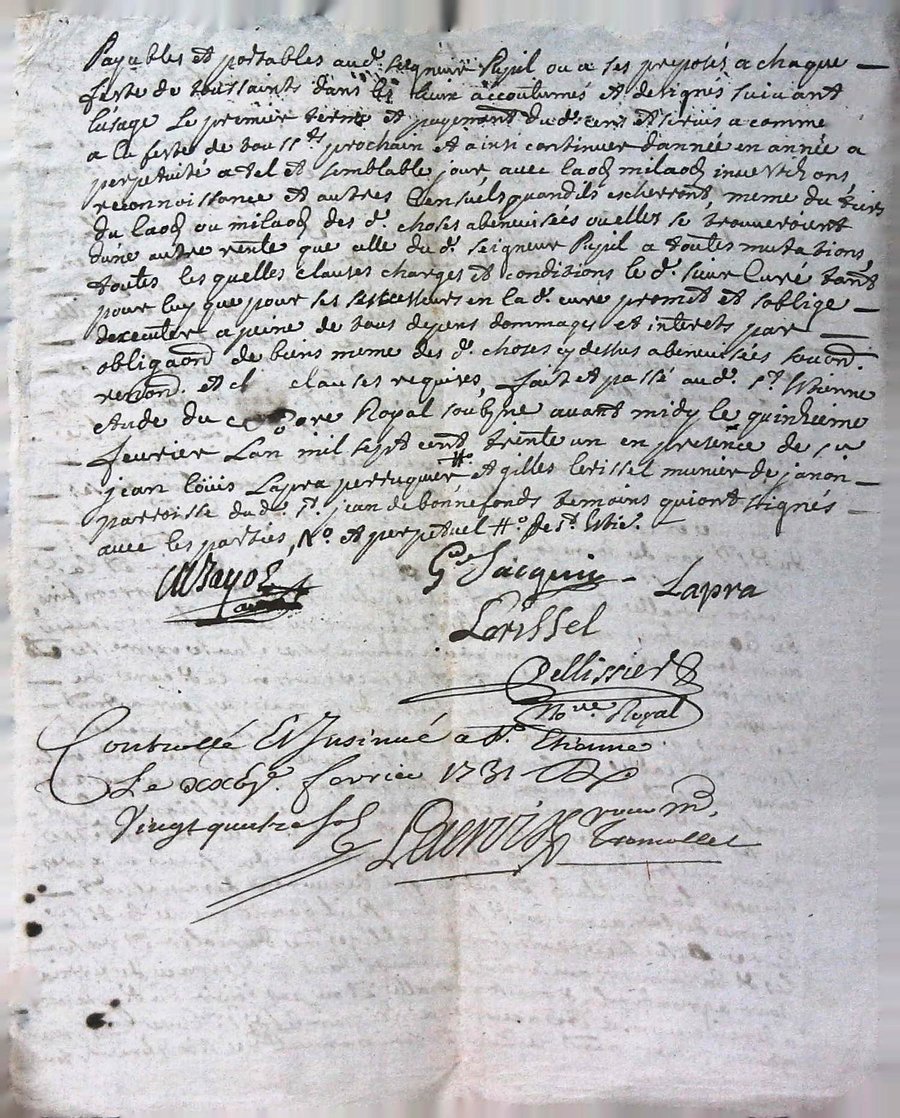 Payables et portables aud. seigneur Pupil ou a ses preposés a chaque
feste de toussaints dans les lieux accoutumés et designés suivant
lusage le premier terme et payement dud. cens et servis a comme
a la feste de touss.ts prochain et ainsi continuer dannée en année a
perpetuité a tel et semblable jour, avec laods milaods investisons
reconnoissance et autres Censuels quand ils escherront, meme du tiers
du laods ou milaods des d. choses abenevisées ou elles se trouveroient
dune autre rente que celle du d. seigneur Pupil a toutes mutations,
toutes les quelles clauses charges et conditions le d. sieur Curé tant
pour luy que pour ses successeurs en la d. cure promet et soblige
dexecuter a peine de tous depens dommages et interets par
obligaond de biens meme des d. choses cy dessus abenevisées
renond. et clauses requises, fait et passé aud. St Etienne
etude du Royal soubgne avant midy le quinzieme
fevrier Lan mil sept cent trente un en presence de sr
jean Loüis Lapra perruquier # et gilles lerissel munier de janon
parroisse dud. St. jean de bonnefonds temoins qui ont signés
avec les parties, No. et perpetuel #o. de St Etie.
G Jacquin Lapra
Lerissel
Pellissier
No.re Royal
Controllé Et Insinué a St. Etienne
Le fevrier 1731
Vingt quatre sols
Lacroix
Tramollet